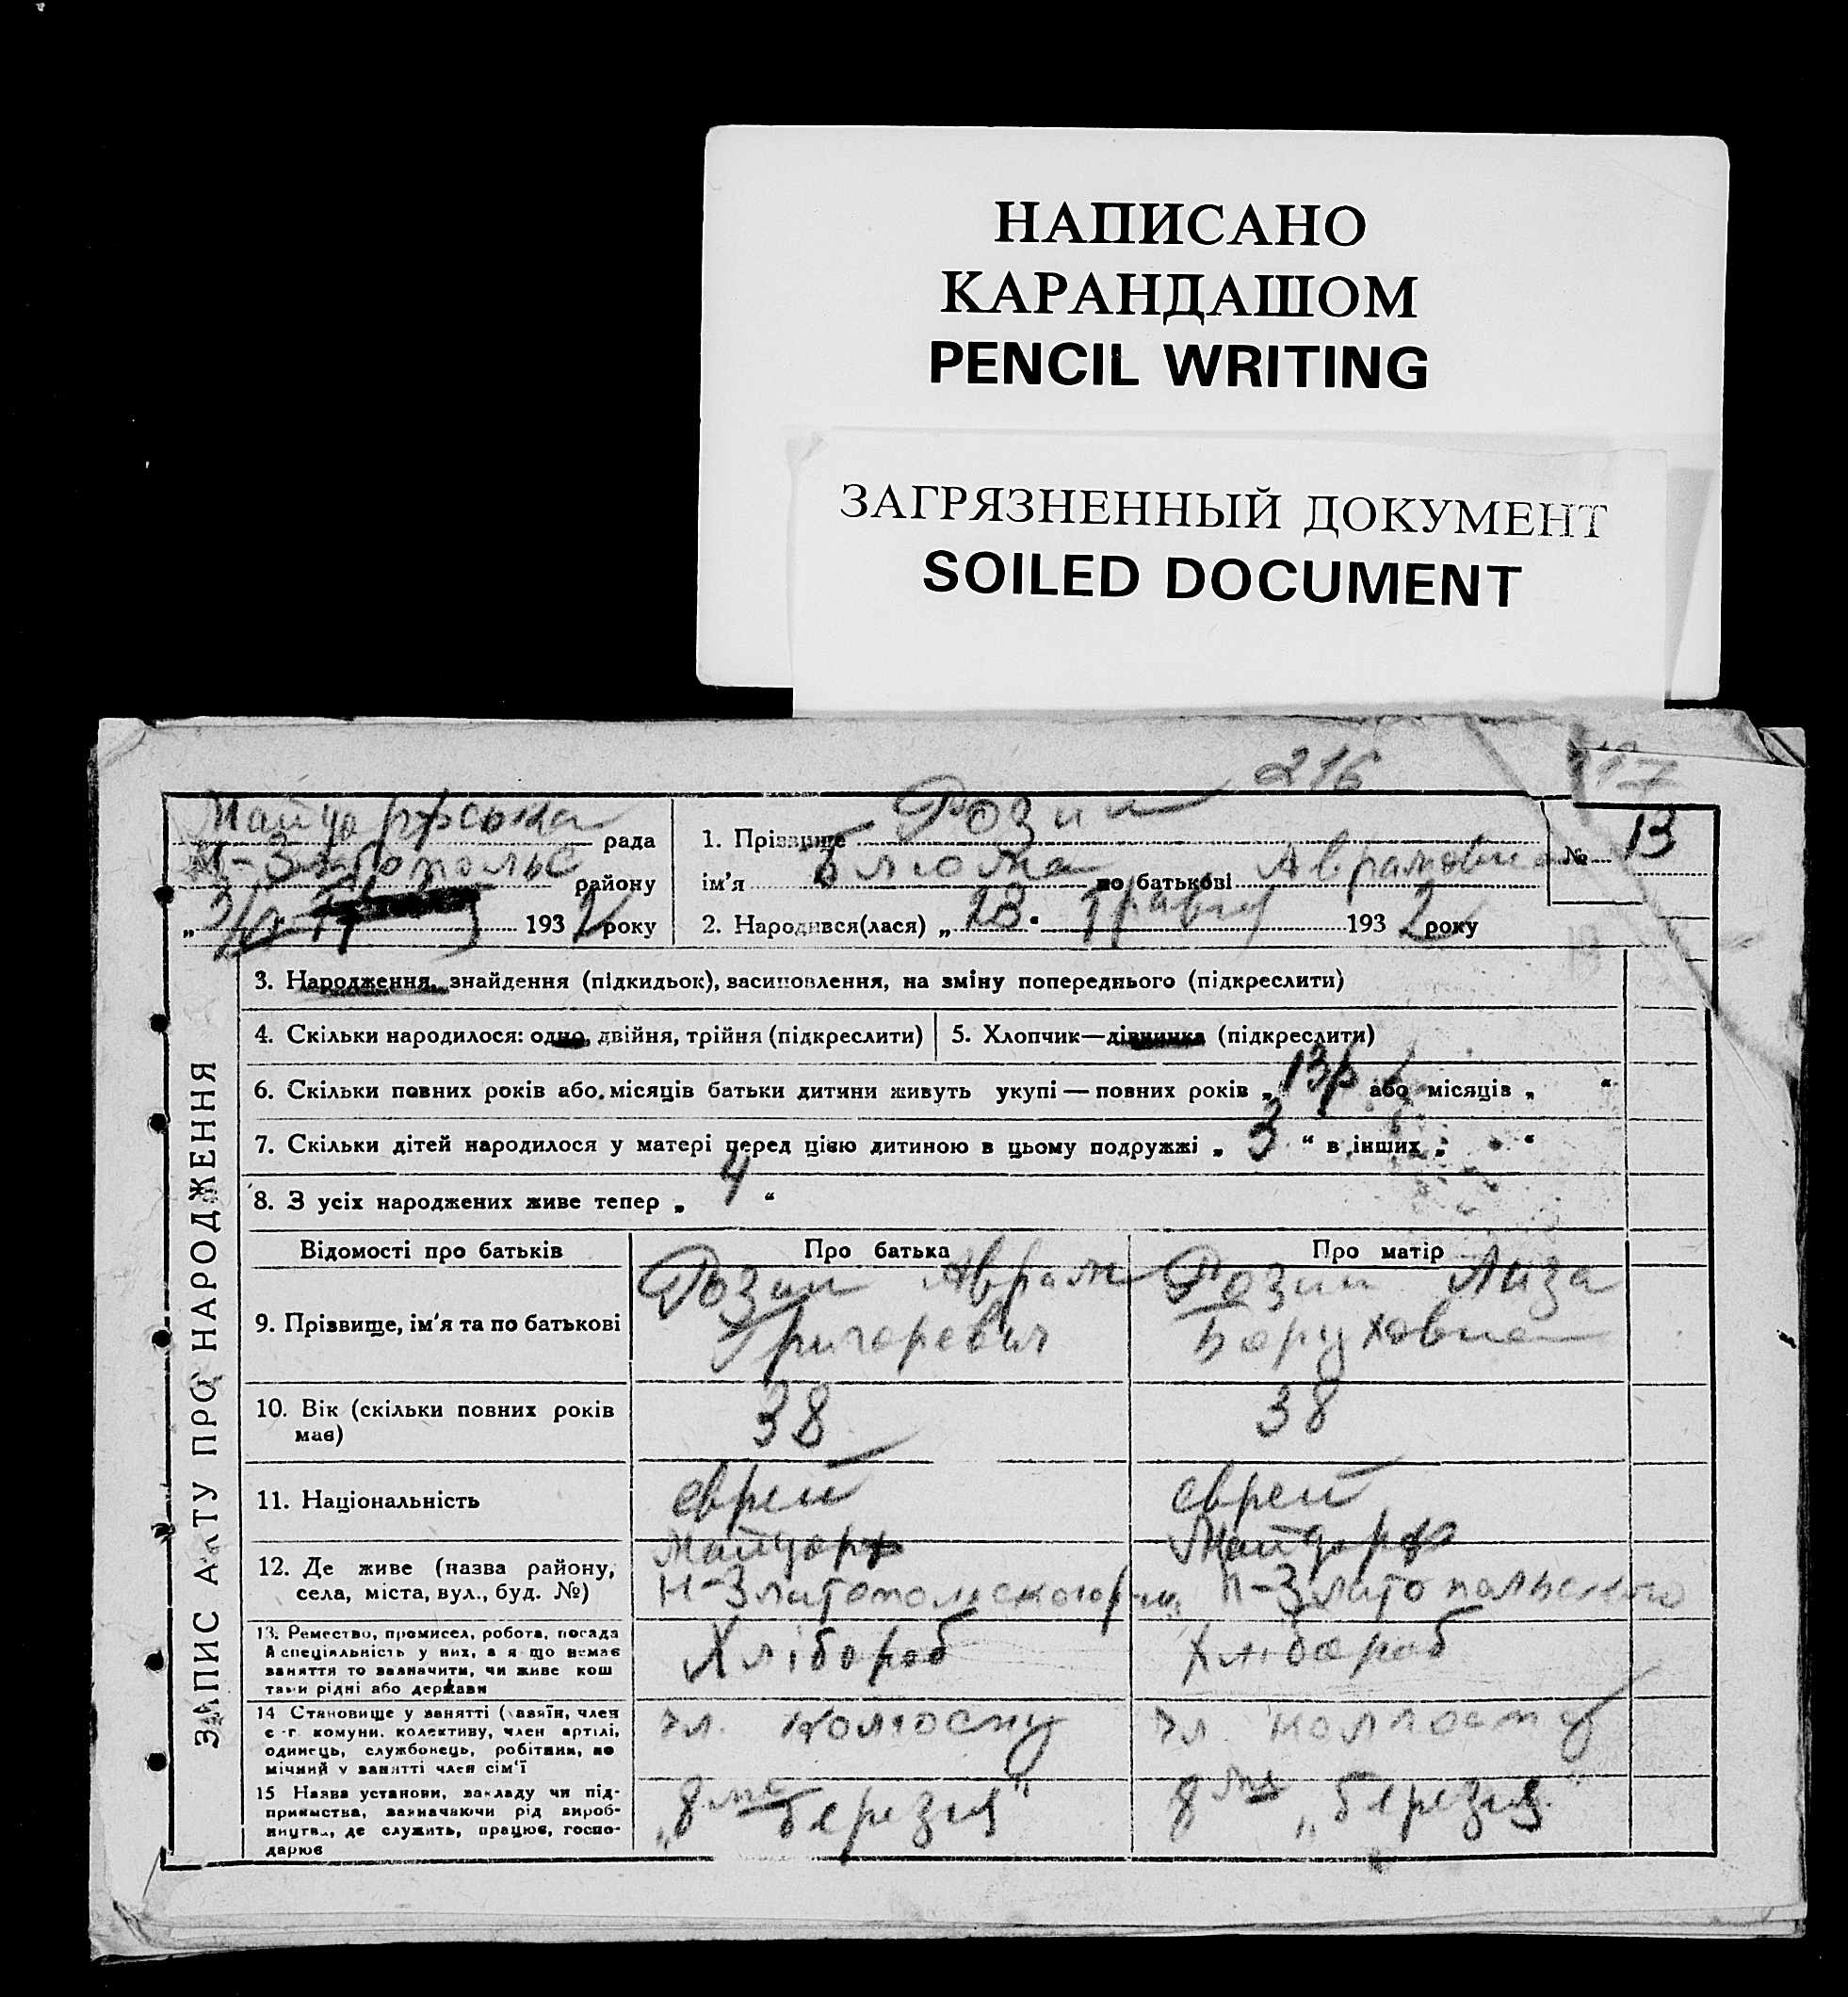 НАПИСАНО
КАРАНДАШОМ
PENCIL WRITING
ЗАГРЯЗНЕННЫЙ ДОКУМЕНТ
SOILED DOCUMENT
216
17
рада
району
193 2 року
1. Прізвище Розин
ім'я Блюма по батькові Аврамовна
2. Народився(лася) „ 23 " Травня 193 2 року
№ 13
ЗАПИС АКТУ ПРО НАРОДЖЕННЯ
3. Народження, знайдення (підкидьок), засиновлення, на зміну попереднього (підкреслити)
4. Скільки народилося: одно, двійня, трійня (підкреслити)
5. Хлопчик—дівчинка (підкреслити)
6. Скільки повних років або місяців батьки дитини живуть укупі — повних років „ 13р або місяців „ "
7. Скільки дітей народилося у матері перед цією дитиною в цьому подружжі „ 3 “ в інших „ “
8. З усіх народжених живе тепер „ 4 “
Відомості про батьків
Про батька
Про матір
9. Прізвище, ім'я та по батькові
Розин Аврам
Григоревич
Розин Лиза
Боруховна
10. Вік (скільки повних років
має)
38
38
11. Національність
еврей
еврей
12. Де живе (назва району,
села, міста, вул., буд. №)
Майдорф
Н-Златопольского
Майдорф
Н-Златопольского
13. Ремество, промисел, робота, посада
й спеціяльність у них, а якщо немає
заняття то зазначити, чи живе кош
тами рідні або держави
Хлібороб
Хлібороб
14 Становище у занятті (хазяїн, член
с-г. комуни, колективу, член артілі,
одинець, службовець, робітник, по
мічний у занятті член сім'ї
чл. колгоспу
чл колгоспу
15 Назва установи, закладу чи під-
приємства, зазначаючи рід вироб-
ництва, де служить, працює, госпо-
дарює
„8 березня"
8 „березня"